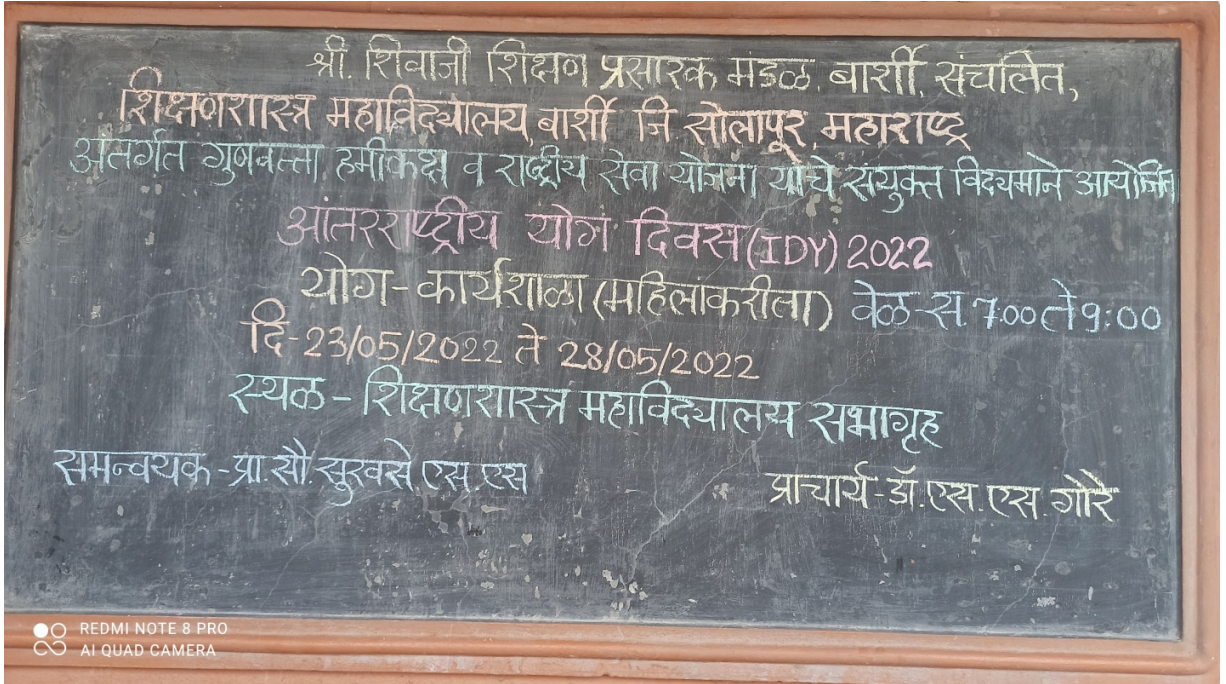 श्री. शिवाजी शिक्षण प्रसारक मंडळ, बार्शी, संचलित,
शिक्षणशास्त्र महाविद्यालय, बार्शी जि. सोलापूर, महाराष्ट्र
अंतर्गत गुणवत्ता हमीकक्ष व राष्ट्रीय सेवा योजना यांचे संयुक्त विद्यमाने आयोजित
आंतरराष्ट्रीय योग दिवस (IDY) 2022
योग-कार्यशाळा (महिलाकरीता) वेळ-स. 7.00 ते 9:00
दि-23/05/2022 ते 28/05/2022
स्थळ - शिक्षणशास्त्र महाविद्यालय सभागृह
समन्वयक-प्रा.सौ. सुरवसे एस.एस
प्राचार्य-डॉ.एस.एस.गोरे
REDMI NOTE 8 PRO
AI QUAD CAMERA